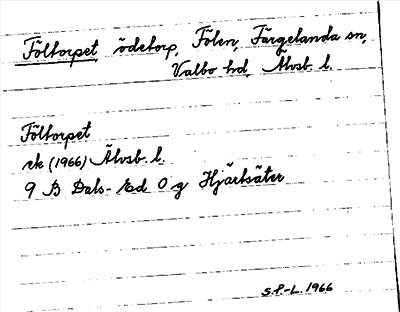 Föltorpet, ödetorp, Fölen, Färgelanda sn,
Valbo hd, Älvsb. l.
Föltorpet
ek (1966) Älvsb. l.
9 B Dals-Ed 0 g Hjärtsäter
S.P.-L. 1966